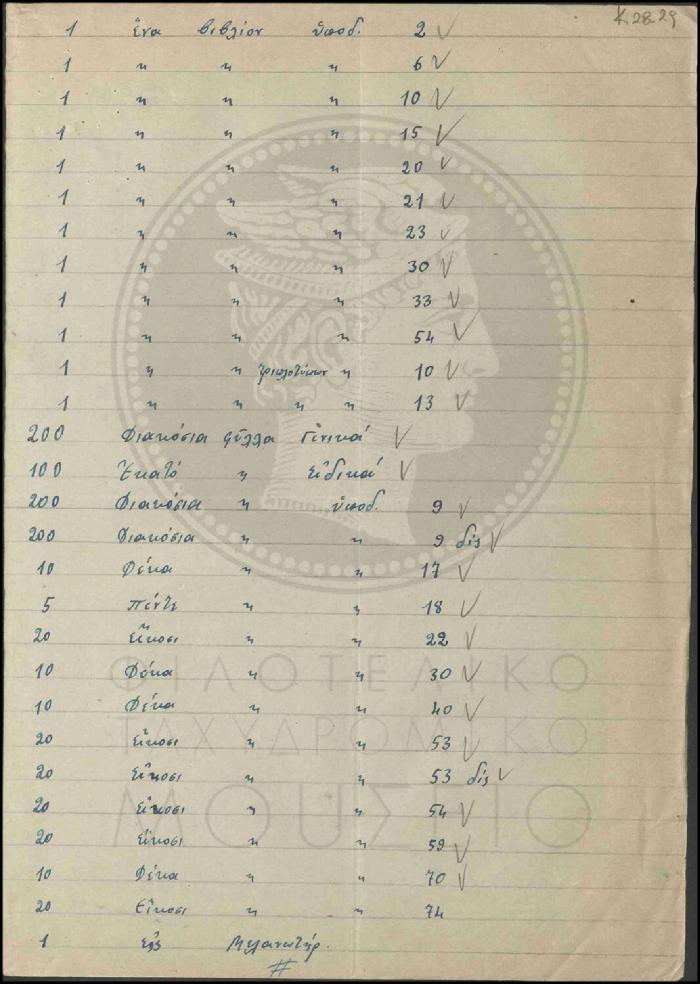 K. 28.29
1 ἕνα βιβλίον ὑποδ. 2 √
1 " " " 6 √
1 " " " 10 √
1 " " " 15 √
1 " " " 20 √
1 " " " 21 √
1 " " " 23 √
1 " " " 30 √
1 " " " 33 √
1 " " " 54 √
1 " " " 10 √
1 " " " " 13 √
200 Διακόσια φύλλα Γενικά √
100 Ἑκατό " Εἰδικά √
200 Διακόσια " ὑποδ. 9 √
200 Διακόσια " " 9 δίς √
10 Δέκα " " 17 √
5 πέντε " " 18 √
20 Εἴκοσι " " 22 √
10 Δέκα " " 30 √
10 Δέκα " " 40 √
20 Εἴκοσι " " 53 √
20 Εἴκοσι " " 53 δίς √
20 Εἴκοσι " " 54 √
20 Εἴκοσι " " 59 √
10 Δέκα " " 70 √
20 Εἴκοσι " " 74
1 εἷς Μελανωτήρ.
#
ΦΙΛΟΤΕΛΙΚΟ
ΤΑΧΥΔΡΟΜΙΚΟ
ΜΟΥΣΕΙΟ